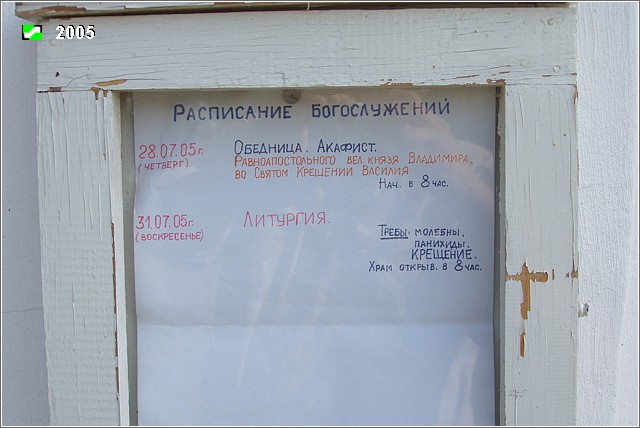 2005
РАСПИСАНИЕ БОГОСЛУЖЕНИЙ
28.07.05г. ОБЕДНИЦА. АКАФИСТ.
(ЧЕТВЕРГ) РАВНОАПОСТОЛЬНОГО ВЕЛ. КНЯЗЯ ВЛАДИМИРА,
ВО СВЯТОМ КРЕЩЕНИИ ВАСИЛИЯ.
НАЧ. В 8 ЧАС.
31.07.05г. ЛИТУРГИЯ.
(ВОСКРЕСЕНЬЕ)
ТРЕБЫ: МОЛЕБНЫ,
ПАНИХИДЫ,
КРЕЩЕНИЕ.
ХРАМ ОТКРЫВ. В 8 ЧАС.